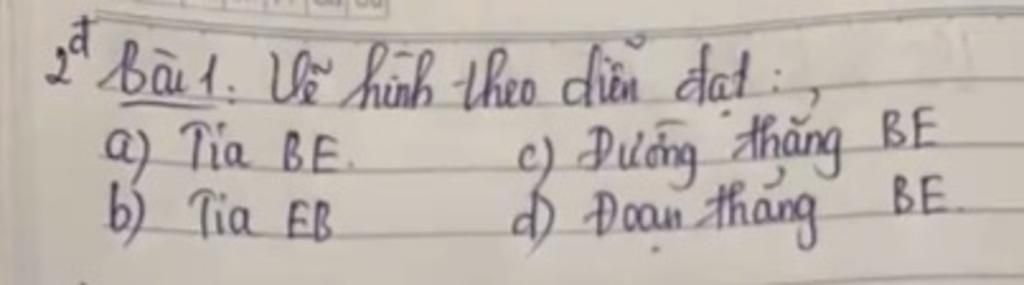 2đ Bài 1. Vẽ hình theo diễn đạt:
a) Tia BE. c) Đường thẳng BE
b) Tia EB d) Đoạn thẳng BE.